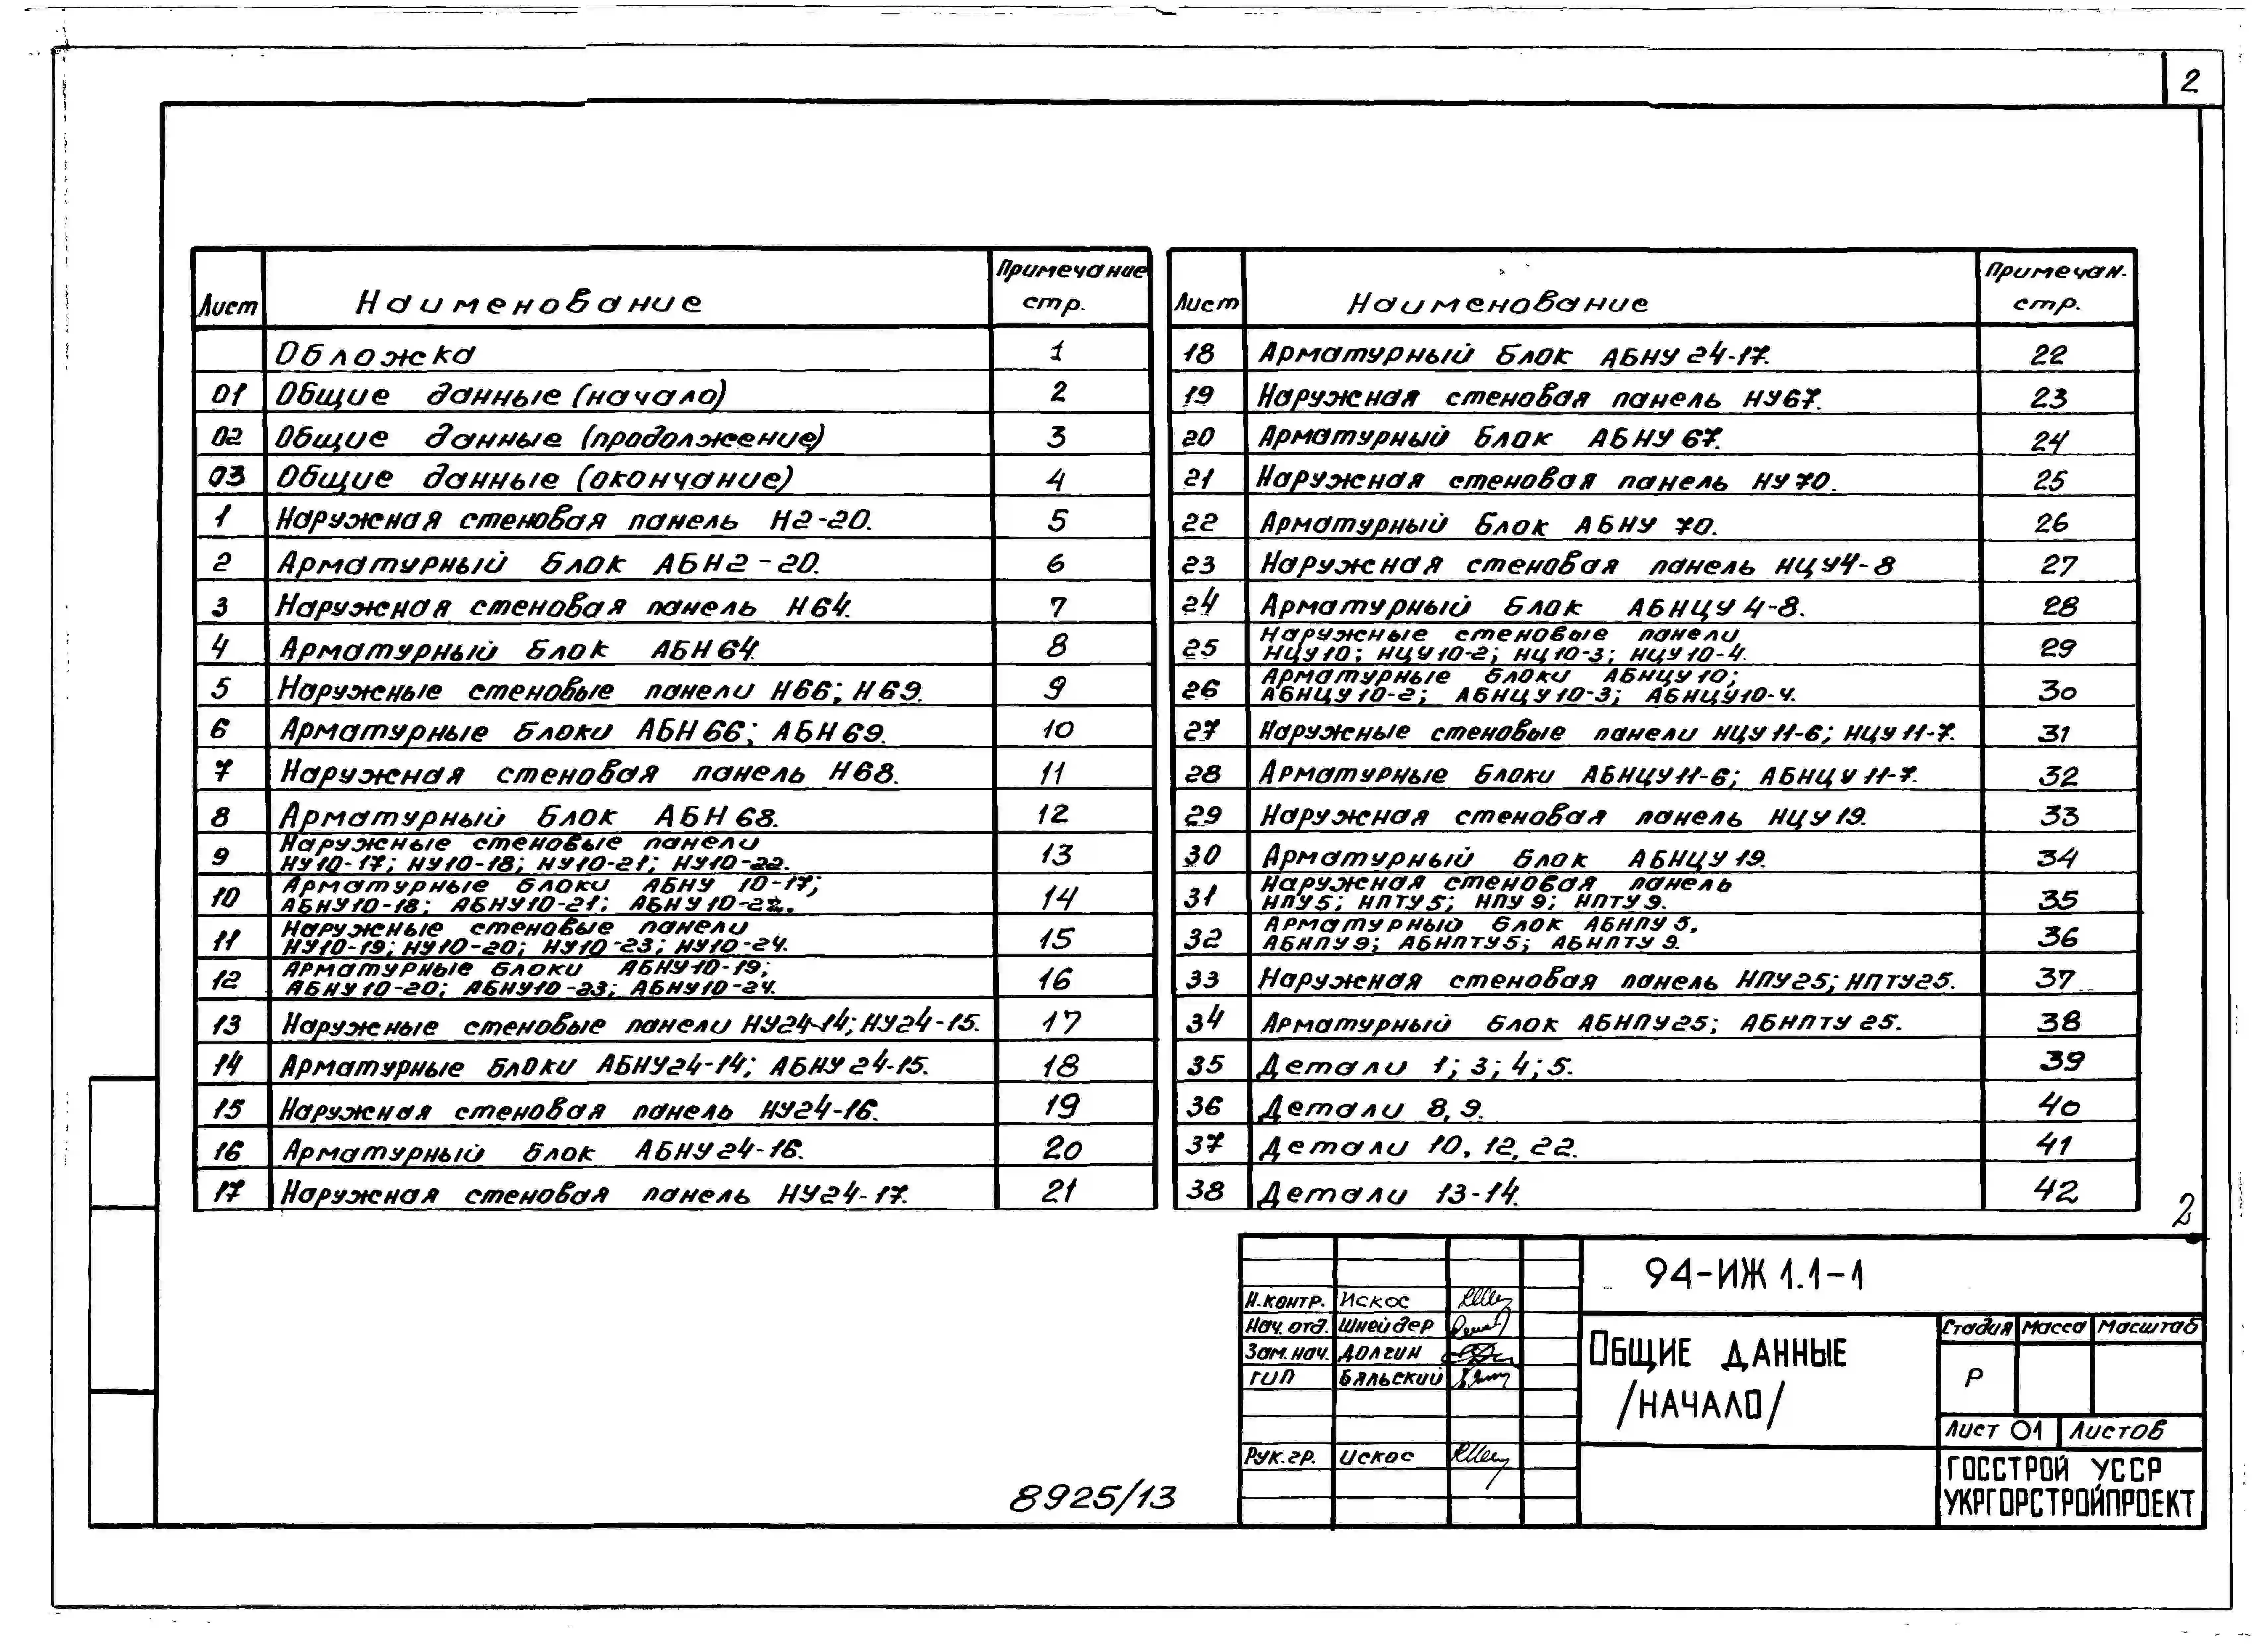 2
Лист Наименование Примечание стр.
Обложка 1
01 Общие данные (начало) 2
02 Общие данные (продолжение) 3
03 Общие данные (окончание) 4
1 Наружная стеновая панель Н2-20. 5
2 Арматурный блок АБН2-20. 6
3 Наружная стеновая панель Н64. 7
4 Арматурный блок АБН64 8
5 Наружные стеновые панели Н66; Н69. 9
6 Арматурные блоки АБН66; АБН69. 10
7 Наружная стеновая панель Н68. 11
8 Арматурный блок АБН68. 12
9 Наружные стеновые панели
НУ10-17; НУ10-18; НУ10-21; НУ10-22. 13
10 Арматурные блоки АБНУ 10-17;
АБНУ10-18; АБНУ10-21; АБНУ10-22. 14
11 Наружные стеновые панели
НУ10-19; НУ10-20; НУ10-23; НУ10-24. 15
12 Арматурные блоки АБНУ10-19;
АБНУ10-20; АБНУ10-23; АБНУ10-24. 16
13 Наружные стеновые панели НУ24-14; НУ24-15. 17
14 Арматурные блоки АБНУ24-14; АБНУ24-15. 18
15 Наружная стеновая панель НУ24-16. 19
16 Арматурный блок АБНУ24-16. 20
17 Наружная стеновая панель НУ24-17. 21
Лист Наименование Примечан. стр.
18 Арматурный блок АБНУ24-17. 22
19 Наружная стеновая панель НУ67. 23
20 Арматурный блок АБНУ67. 24
21 Наружная стеновая панель НУ70. 25
22 Арматурный блок АБНУ 70. 26
23 Наружная стеновая панель НЦУ4-8 27
24 Арматурный блок АБНЦУ4-8. 28
25 Наружные стеновые панели
НЦУ10; НЦУ10-2; НЦ10-3; НЦУ10-4. 29
26 Арматурные блоки АБНЦУ10;
АБНЦУ10-2; АБНЦУ10-3; АБНЦУ10-4. 30
27 Наружные стеновые панели НЦУ11-6; НЦУ11-7. 31
28 Арматурные блоки АБНЦУ11-6; АБНЦУ11-7. 32
29 Наружная стеновая панель НЦУ19. 33
30 Арматурный блок АБНЦУ19. 34
31 Наружная стеновая панель
НПУ5; НПТУ5; НПУ9; НПТУ9. 35
32 Арматурный блок АБНПУ5,
АБНПУ9; АБНПТУ5; АБНПТУ9. 36
33 Наружная стеновая панель НПУ25; НПТУ25. 37
34 Арматурный блок АБНПУ25; АБНПТУ25. 38
35 Детали 1; 3; 4; 5. 39
36 Детали 8, 9. 40
37 Детали 10, 12, 22. 41
38 Детали 13-14. 42
2
94-ИЖ 1.1-1
Н.контр. Искос
Нач. отд. Шнейдер
Зам. нач. Долгин
ГИП Бяльский
Рук. гр. Искос
Общие данные
/начало/
Стадия Масса Масштаб
Р
Лист 01 Листов
ГОССТРОЙ УССР
УКРГОРСТРОЙПРОЕКТ
8925/13